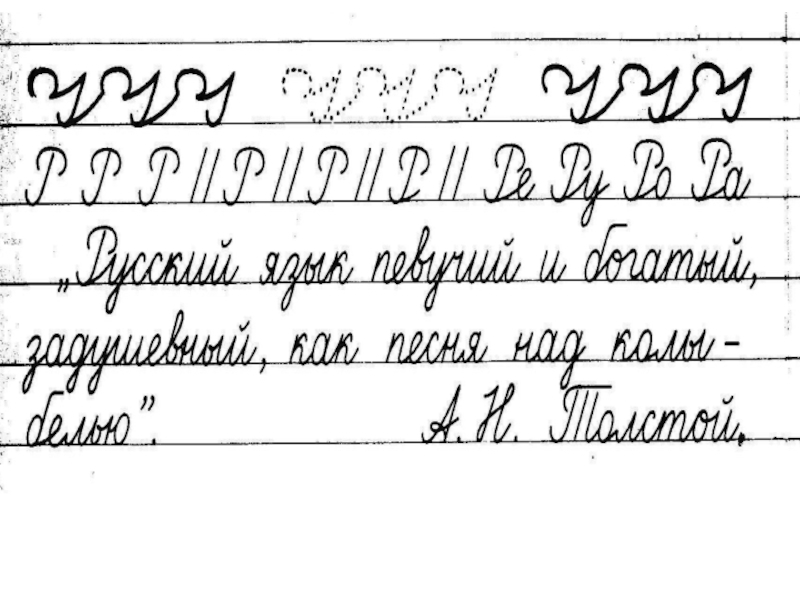 У У У У У У У У У
Р Р Р // Р // Р // Р // Ре Ру Ро Ра
„Русский язык певучий и богатый,
задушевный, как песня над колы-
белью”. А. Н. Толстой.